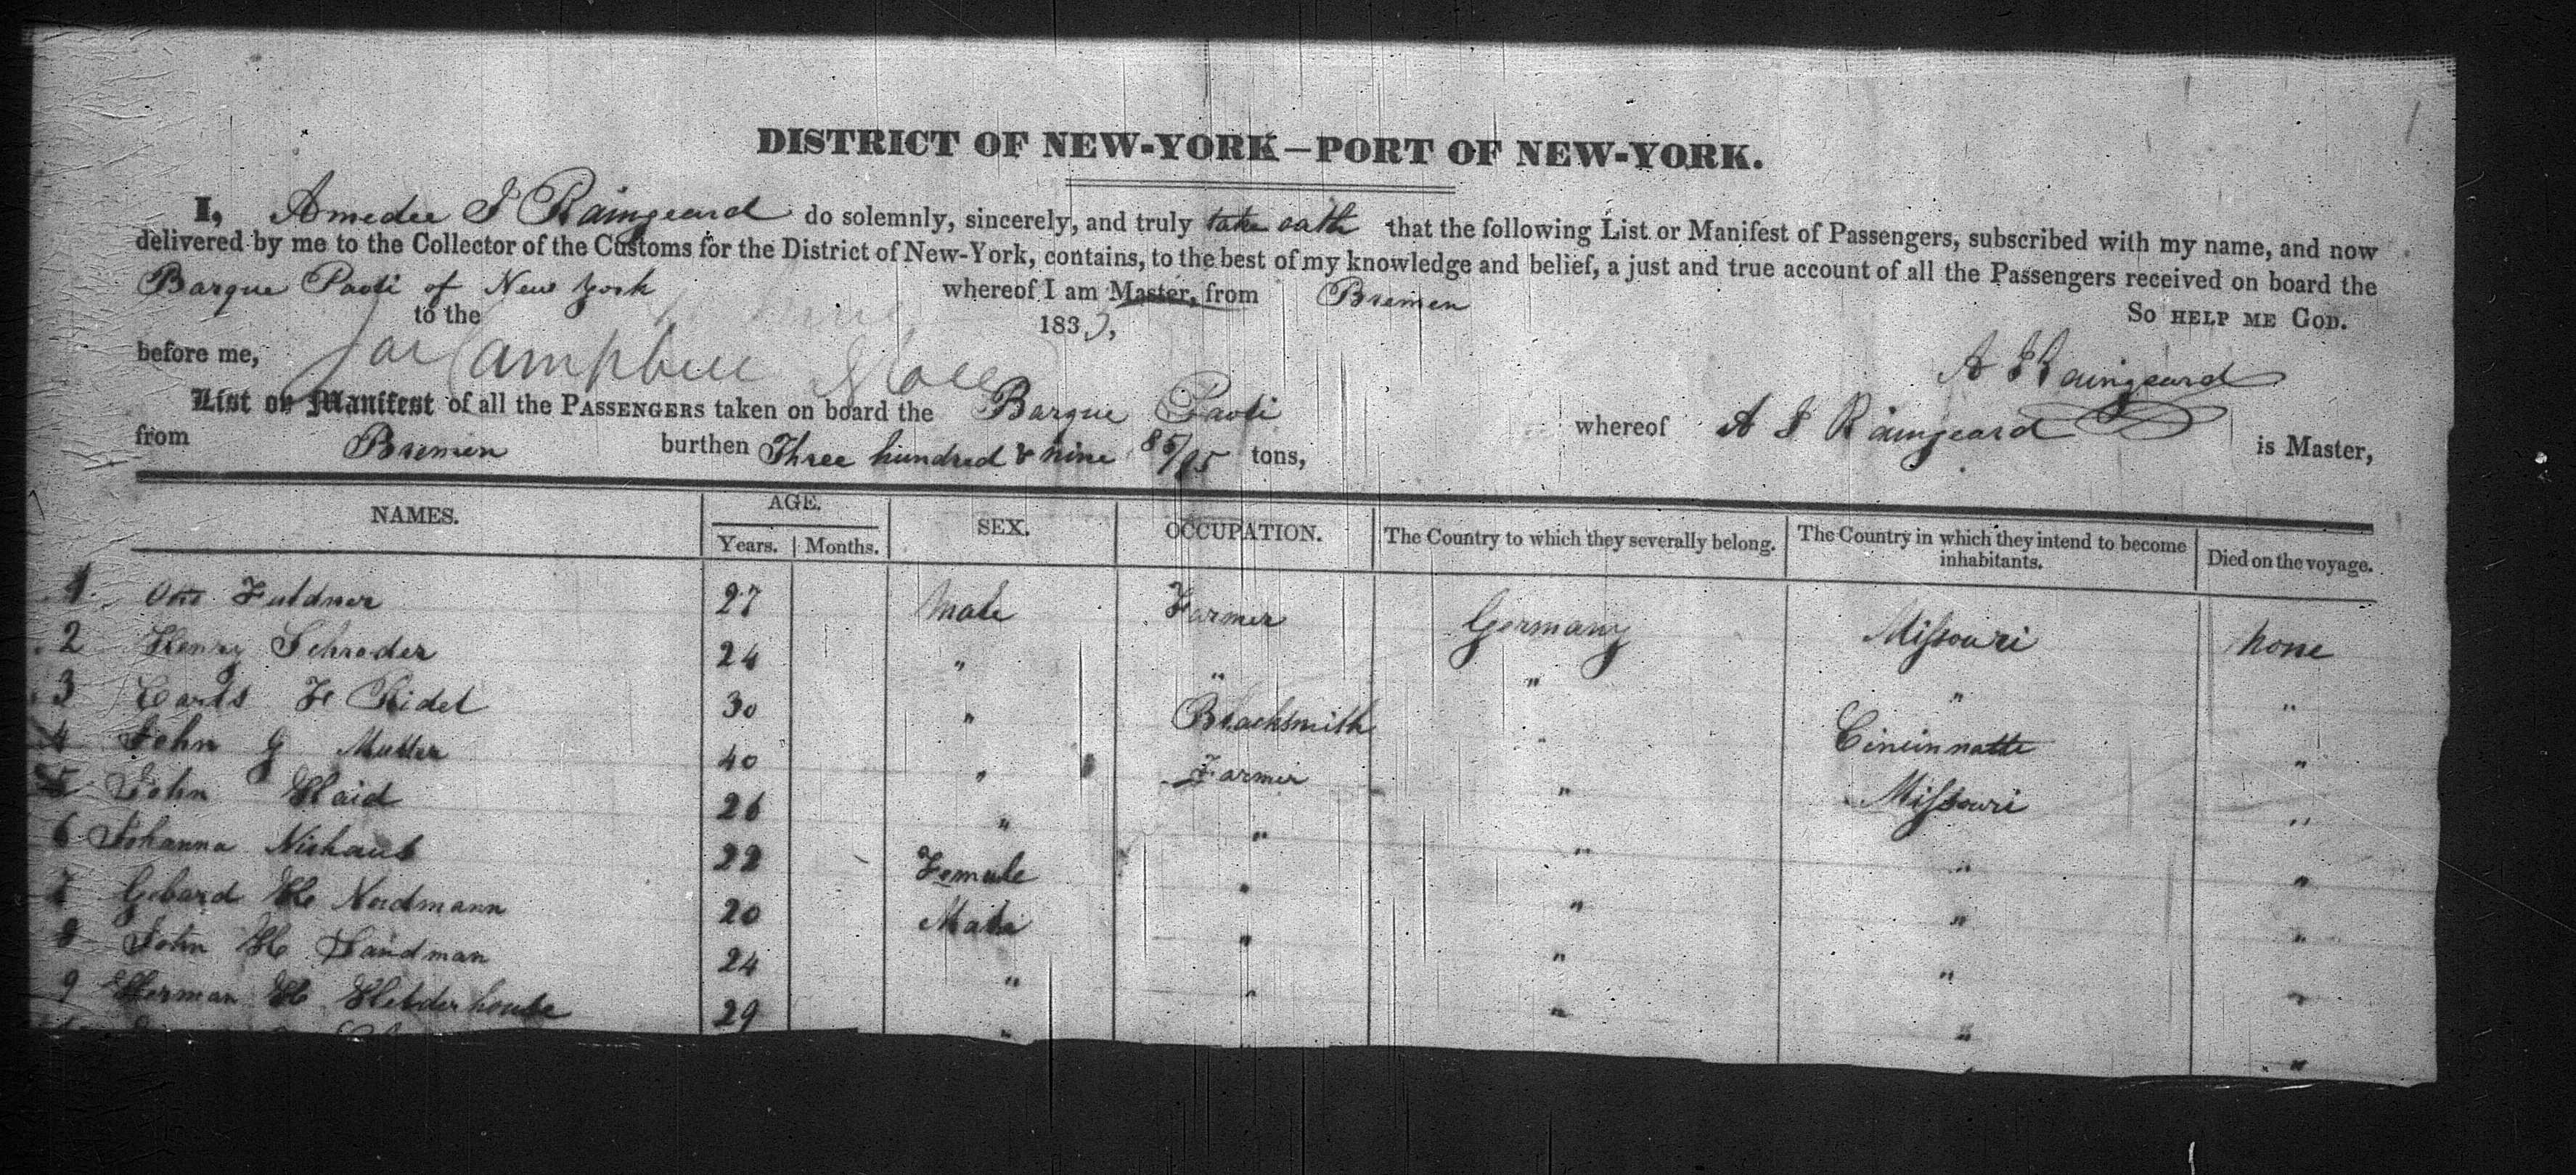 DISTRICT OF NEW-YORK—PORT OF NEW-YORK.
I, Amedee J Raingeard do solemnly, sincerely, and truly take oath that the following List or Manifest of Passengers, subscribed with my name, and now
delivered by me to the Collector of the Customs for the District of New-York, contains, to the best of my knowledge and belief, a just and true account of all the Passengers received on board the
Barque Paoli of New York whereof I am Master, from Bremen
to the 183 So HELP ME GOD.
before me, Campbell A J Raingeard
List or Manifest of all the PASSENGERS taken on board the Barque Paoli whereof A J Raingeard is Master,
from Bremen burthen Three hundred & nine 85/95 tons,
NAMES. AGE. SEX. OCCUPATION. The Country to which they severally belong. The Country in which they intend to become inhabitants. Died on the voyage.
Years. Months.
1 Otto Fuldner 27 Male Farmer Germany Missouri None
2 Henry Schroder 24 " " " " "
3 Carls F Ridel 30 " Blacksmith " Cincinnatte "
4 John G Muller 40 " Farmer " Missouri "
5 John Haid 26 " " " " "
6 Johanna Niehaus 22 Female " " " "
7 Gebard H Nordmann 20 Male " " " "
8 John H Sandman 24 " " " " "
9 Herman H 29 " "